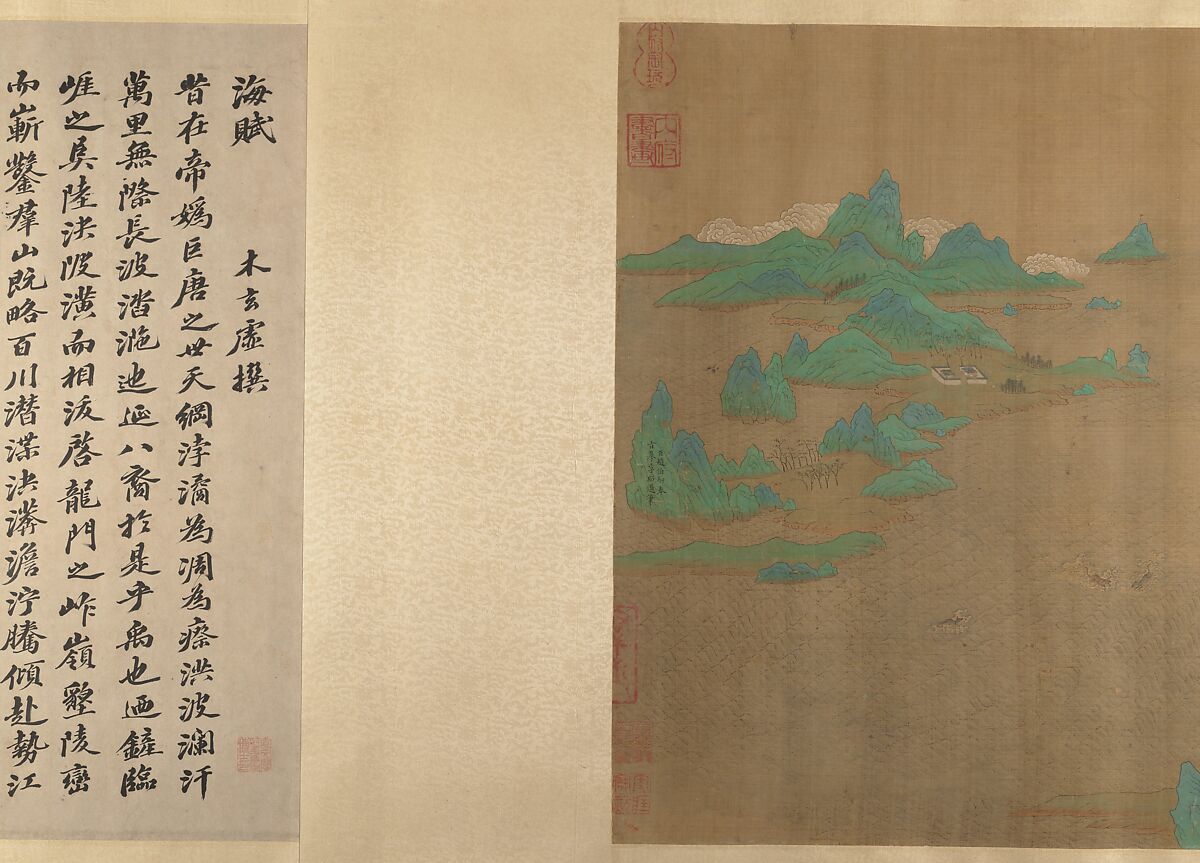 臣趙伯駒奉
旨摹李昭道筆
海賦 木玄虛撰
昔在帝媯巨唐之世天綱浡潏為凋為瘵洪波瀾汗
萬里無際長波涾㴷迆延八裔於是乎禹也迺鏟臨
崕之阜陸決陂潢而相沷啓龍門之岞嶺墾陵巒
而嶄鑿羣山既略百川潛渫泱漭澹泞騰傾赴勢江